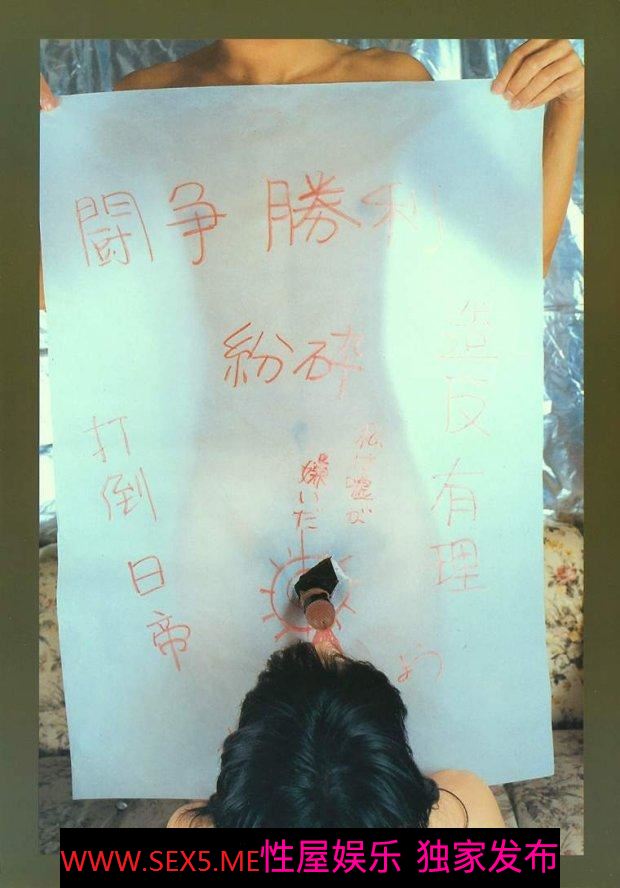 闘争勝利
粉砕
造反有理
打倒日帝
私は嘘が
嫌いだ
WWW.SEX5.ME性屋娱乐 独家发布